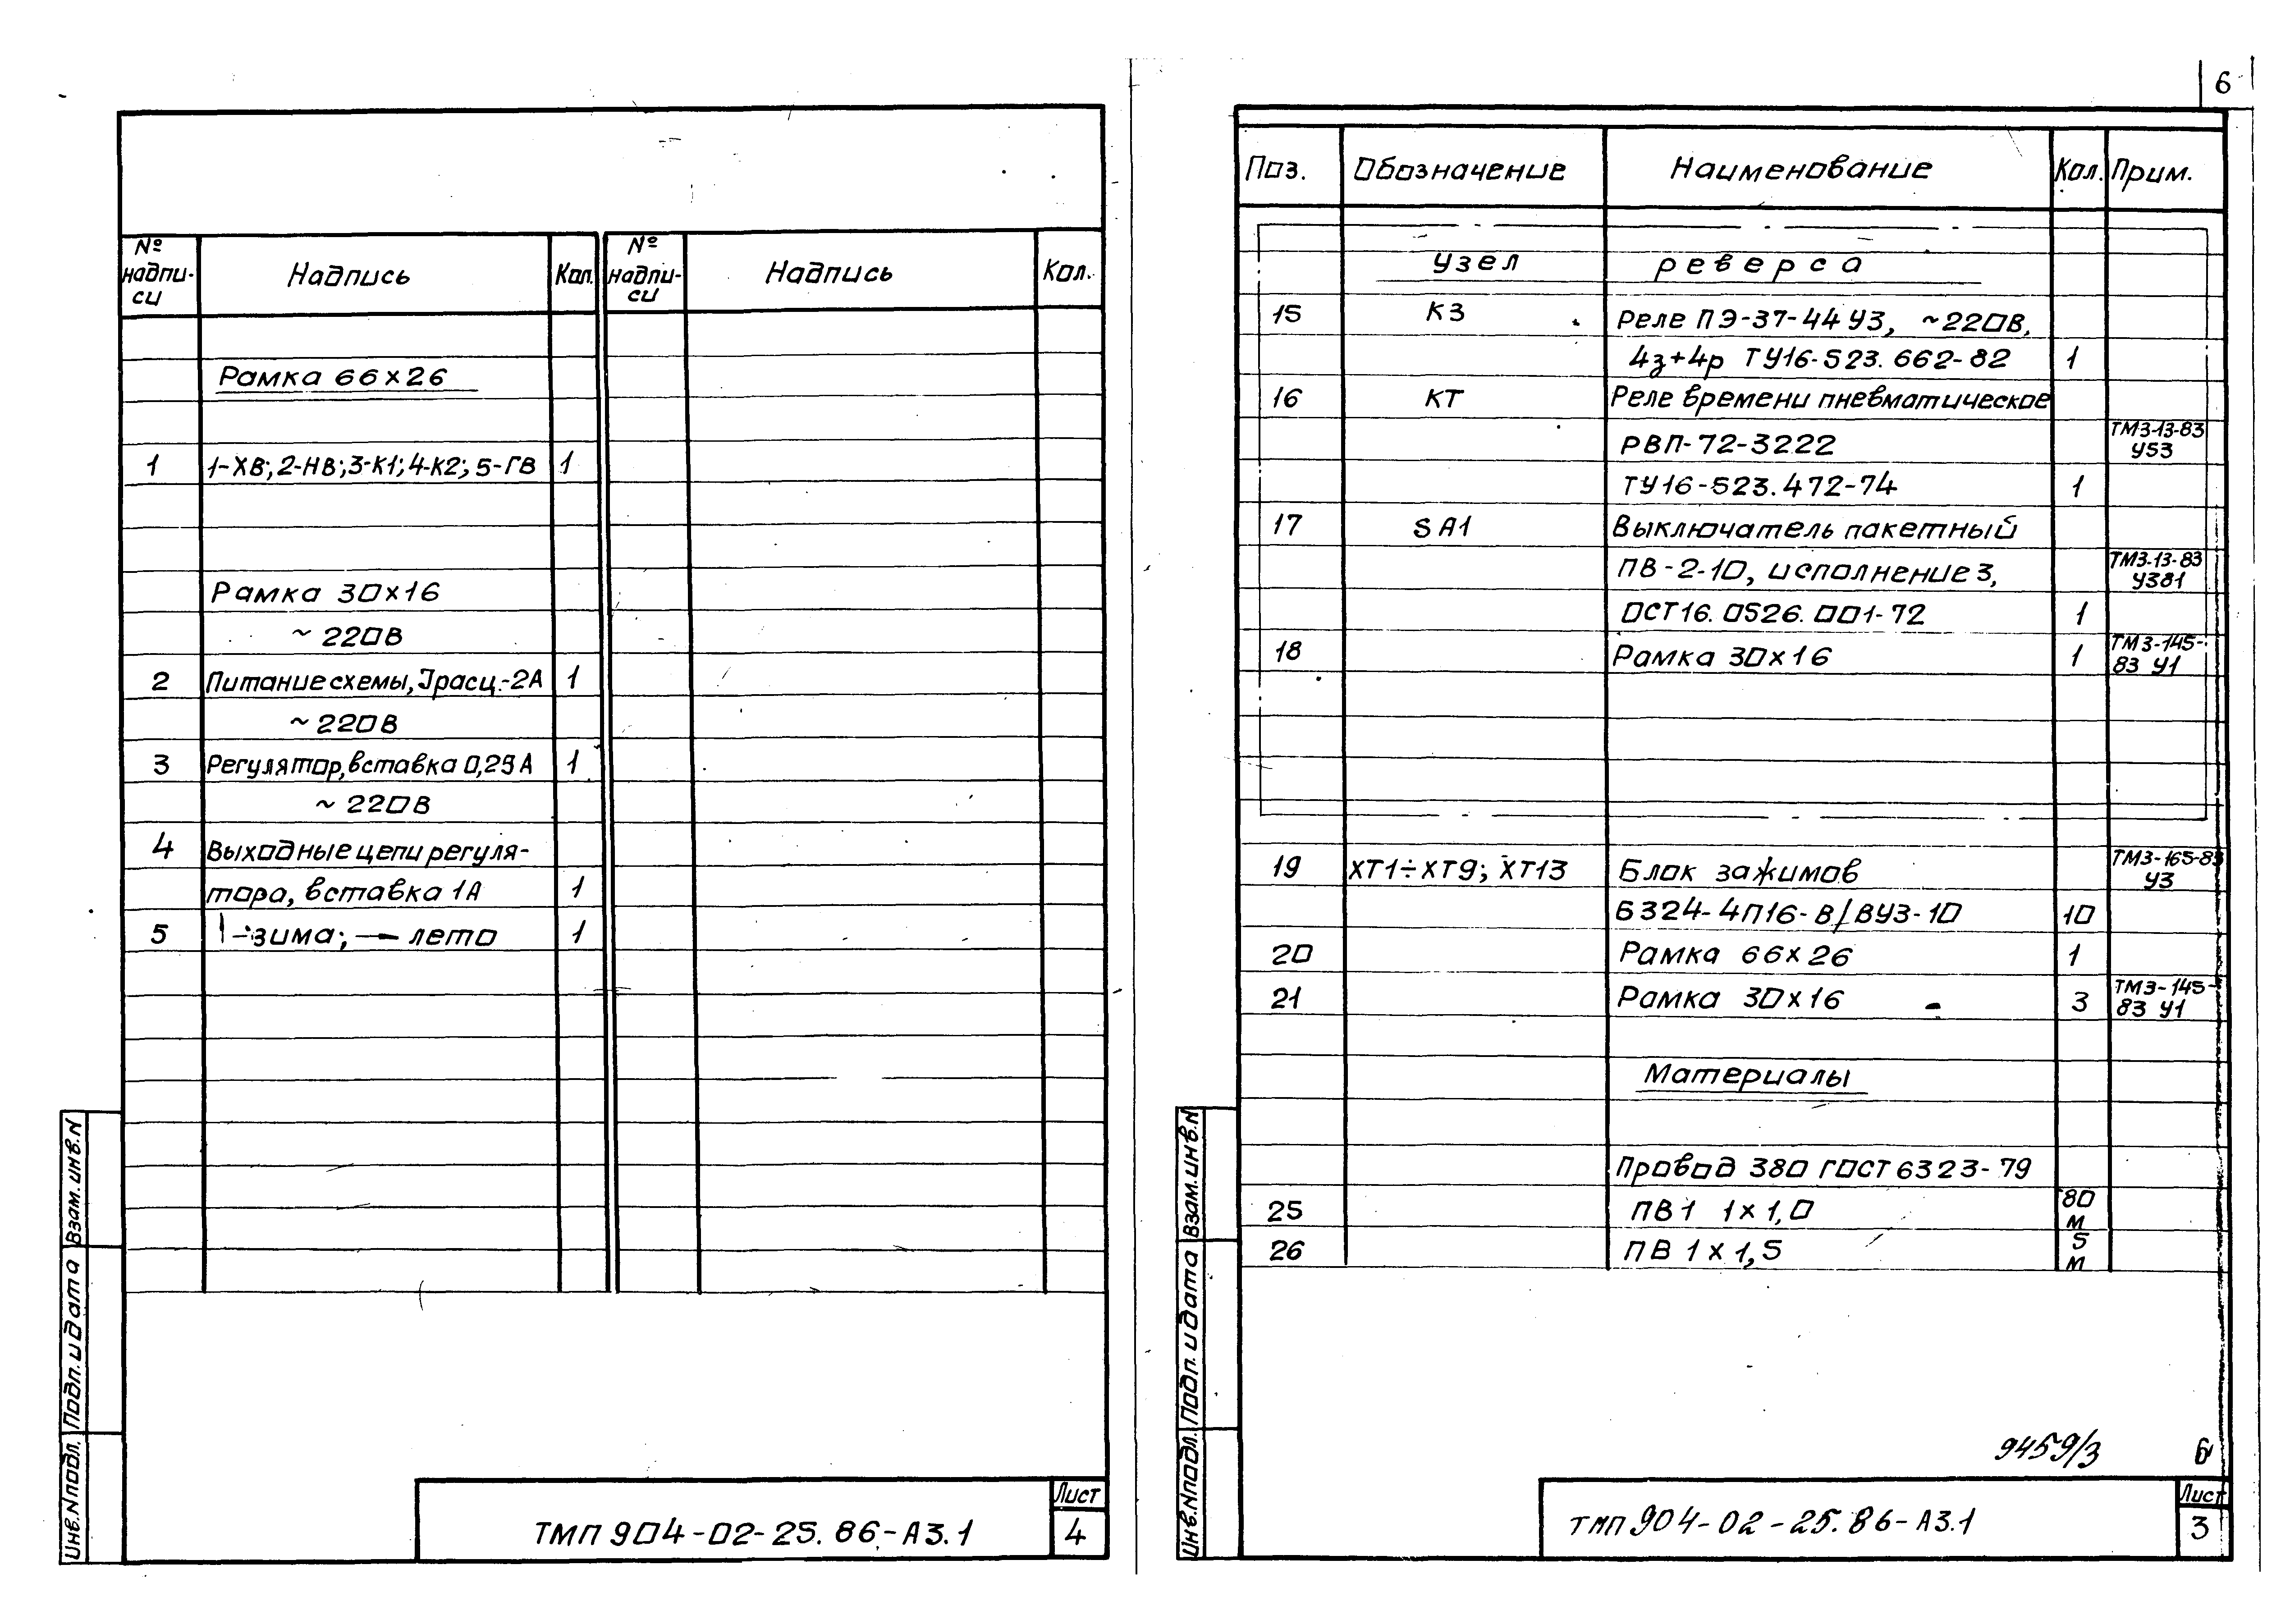 № надпи-си Надпись Кол. № надпи-си Надпись Кол.
Рамка 66×26
1 1-ХВ; 2-НВ; 3-К1; 4-К2; 5-ГВ 1
Рамка 30×16
~ 220В
2 Питание схемы, Iрасц.-2А 1
~ 220В
3 Регулятор, вставка 0,25А 1
~ 220В
4 Выходные цепи регуля-
тора, вставка 1А 1
5 | - зима; — лето 1
Взам. инв. N
Подп. и дата
Инв. N подл.
ТМП 904-02-25.86-А3.1
Лист
4
6
Поз. Обозначение Наименование Кол. Прим.
Узел реверса
15 К3 Реле ПЭ-37-44У3, ~220В,
4з+4р ТУ16-523.662-82 1
16 КТ Реле времени пневматическое
РВП-72-3222 ТМ3-13-83 У53
ТУ16-523.472-74 1
17 SA1 Выключатель пакетный
ПВ-2-10, исполнение 3, ТМ3-13-83 У381
ОСТ16.0526.001-72 1
18 Рамка 30×16 1 ТМ3-145-83 У1
19 ХТ1÷ХТ9; ХТ13 Блок зажимов ТМ3-165-83 У3
Б324-4П16-В/ВУ3-10 10
20 Рамка 66×26 1
21 Рамка 30×16 3 ТМ3-145-83 У1
Материалы
Провод 380 ГОСТ 6323-79
25 ПВ1 1×1,0 80 м
26 ПВ 1×1,5 5 м
Взам. инв. N
Подп. и дата
Инв. N подл.
9459/3 6
ТМП 904-02-25.86-А3.1
Лист
3